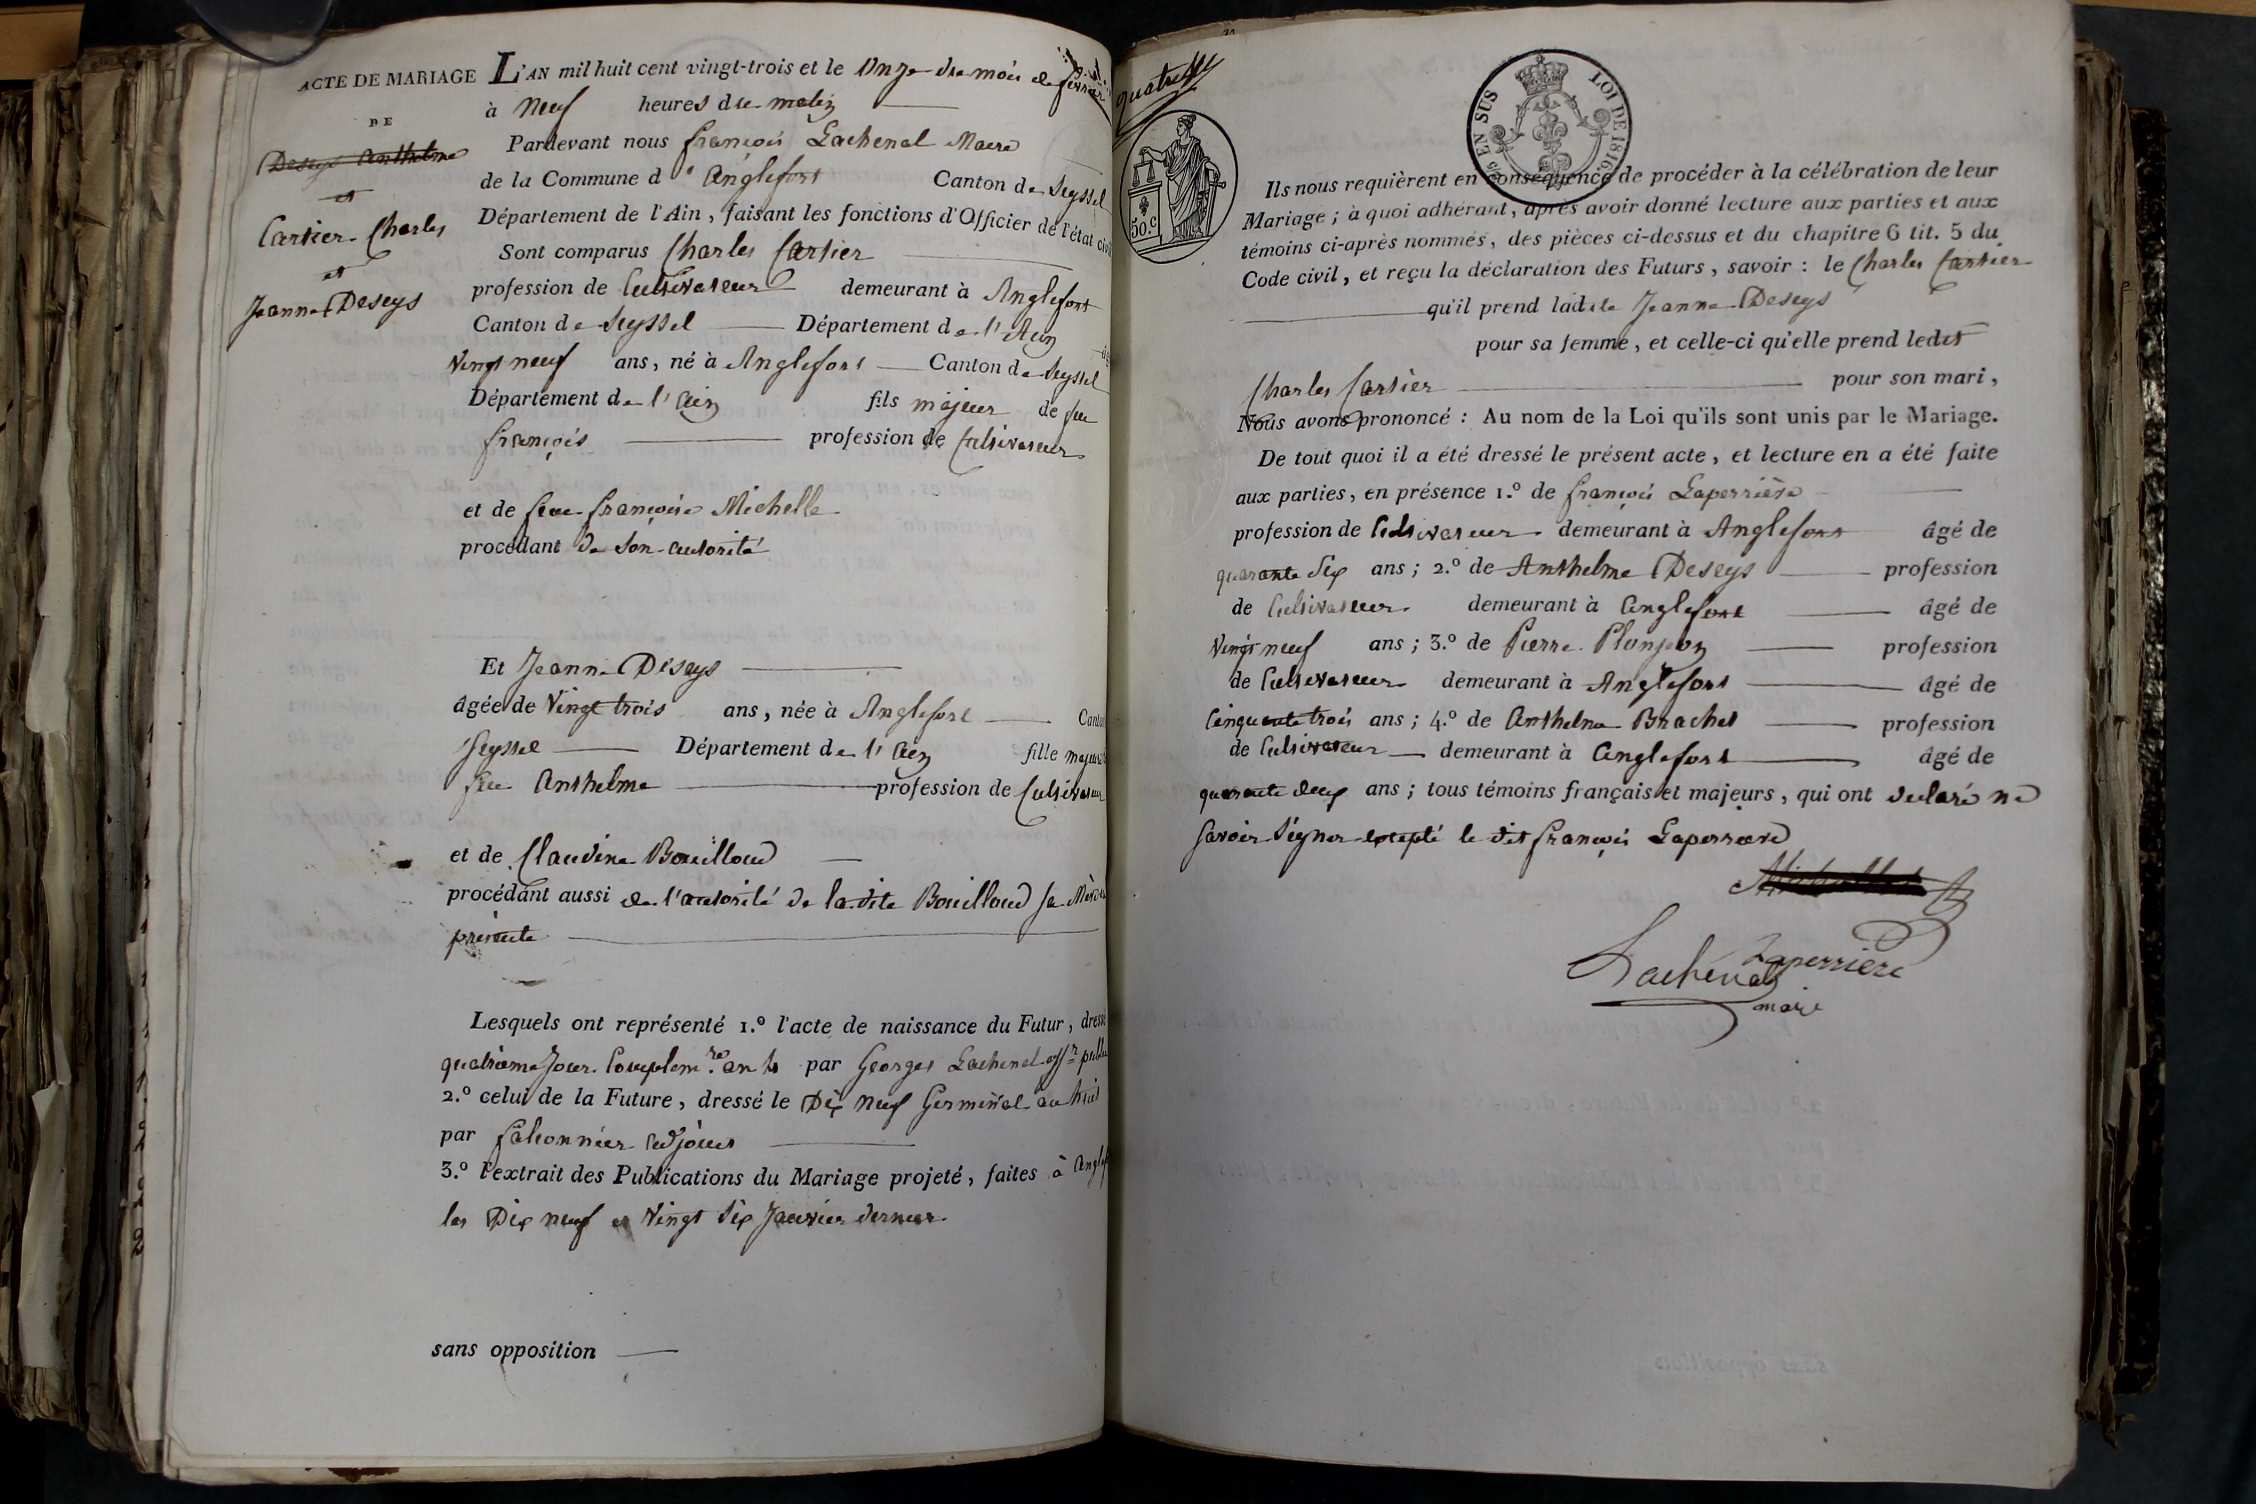 ACTE DE MARIAGE
DE
Deseys Anthelme
et
Cartier Charles
et
Jeanne Deseys
L'AN mil huit cent vingt-trois et le Onze du mois de février
à Neuf heures du matin
Pardevant nous françois Lachenal Maire
de la Commune d'Anglefort Canton de Seyssel
Département de l'Ain, faisant les fonctions d'Officier de l'état civil
Sont comparus Charles Cartier
profession de Cultivateur demeurant à Anglefort
Canton de Seyssel Département de l'Ain
Vingt neuf ans, né à Anglefort Canton de Seyssel
Département de l'Ain fils majeur de feu
françois profession de Cultivateur
et de feue françoise Michelle
procédant de son autorité
Et Jeanne Deseys
âgée de Vingt trois ans, née à Anglefort Canton
Seyssel Département de l'Ain fille majeure
feu Anthelme profession de Cultivateur
et de Claudine Bouilloud
procédant aussi de l'autorité de la dite Bouilloud sa Mère
présente
Lesquels ont représenté 1.º l'acte de naissance du Futur, dressé
quatrième Jour Complem.re an par Georges Lachenal off.r public
2.º celui de la Future, dressé le Dix neuf Germinal an huit
par falconnier adjoint
3.º l'extrait des Publications du Mariage projeté, faites à Anglef
les Dix neuf et Vingt Six Janvier dernier
sans opposition
quatre
50.C
25 EN SUS LOI DE 1816
Ils nous requièrent en conséquence de procéder à la célébration de leur
Mariage; à quoi adhérant, après avoir donné lecture aux parties et aux
témoins ci-après nommés, des pièces ci-dessus et du chapitre 6 tit. 5 du
Code civil, et reçu la déclaration des Futurs, savoir: le Charles Cartier
qu'il prend ladite Jeanne Deseys
pour sa femme, et celle-ci qu'elle prend ledit
Charles Cartier pour son mari,
Nous avons prononcé: Au nom de la Loi qu'ils sont unis par le Mariage.
De tout quoi il a été dressé le présent acte, et lecture en a été faite
aux parties, en présence 1.º de françois Laperrière
profession de Cultivateur demeurant à Anglefort âgé de
quarante Six ans; 2.º de Anthelme Deseys profession
de Cultivateur demeurant à Anglefort âgé de
Vingt neuf ans; 3.º de Pierre Plonjon profession
de Cultivateur demeurant à Anglefort âgé de
Cinquante trois ans; 4.º de Anthelme Brachet profession
de Cultivateur demeurant à Anglefort âgé de
quarante deux ans; tous témoins français et majeurs, qui ont declaré ne
savoir Signer excepté le dit françois Laperriere
Laperrière
Lachenal
maire